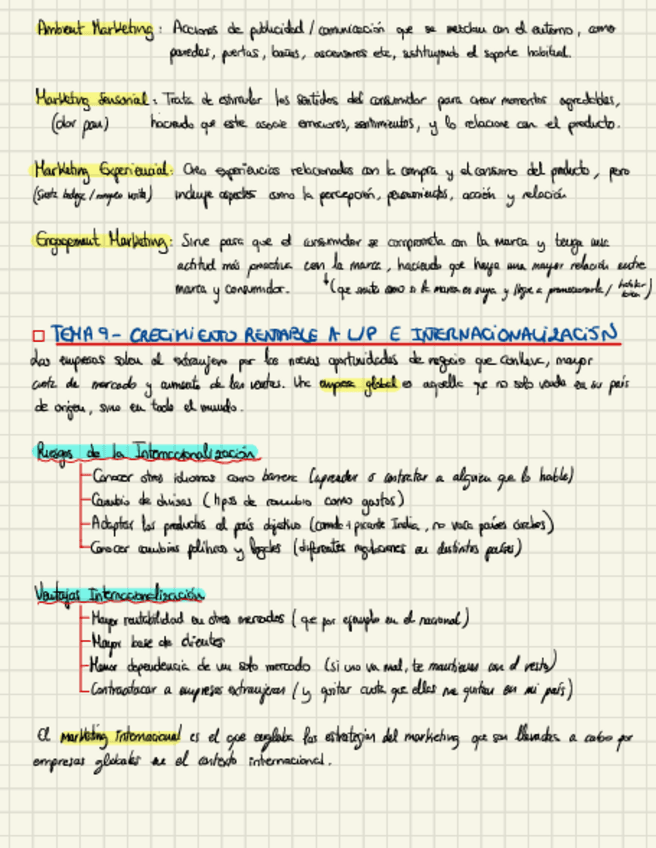 Ambient Marketing: Acciones de publicidad / comunicación que se mezclan con el entorno, como
paredes, puertas, baños, ascensores etc, sustituyendo el soporte habitual.
Marketing Sensorial: Trata de estimular los sentidos del consumidor para crear momentos agradables,
(olor pan) haciendo que este asocie emociones, sentimientos, y lo relacione con el producto.
Marketing Experiencial: Crea experiencias relacionadas con la compra y el consumo del producto, pero
incluye aspectos como la percepción, pensamientos, acción y relación
Engagement Marketing: Sirve para que el consumidor se comprometa con la marca y tenga una
actitud más proactiva con la marca, haciendo que haya una mayor relación entre
marca y consumidor. (que sienta como si la marca es suya y llegue a promocionarla / hablar bien)
TEMA 9 - CRECIMIENTO RENTABLE A L/P E INTERNACIONALIZACIÓN
Las empresas salen al extranjero por las nuevas oportunidades de negocio que conlleva, mayor
cuota de mercado y aumento de las ventas. Una empresa global es aquella que no solo vende en su país
de origen, sino en todo el mundo.
Riesgos de la Internacionalización
Conocer otros idiomas como barrera (aprender o contratar a alguien que lo hable)
Cambio de divisas (tipos de cambio como gastos)
Adaptar los productos al país objetivo (comida + picante India, no vaca países árabes)
Conocer cambios políticos y legales (diferentes regulaciones en distintos países)
Ventajas Internacionalización
Mayor rentabilidad en otros mercados (que por ejemplo en el nacional)
Mayor base de clientes
Menor dependencia de un solo mercado (si uno va mal, te mantienes con el resto)
Contraatacar a empresas extranjeras (y quitar cuota que ellas me quitan en mi país)
El marketing internacional es el que engloba las estrategias del marketing que son llevadas a cabo por
empresas globales en el contexto internacional.